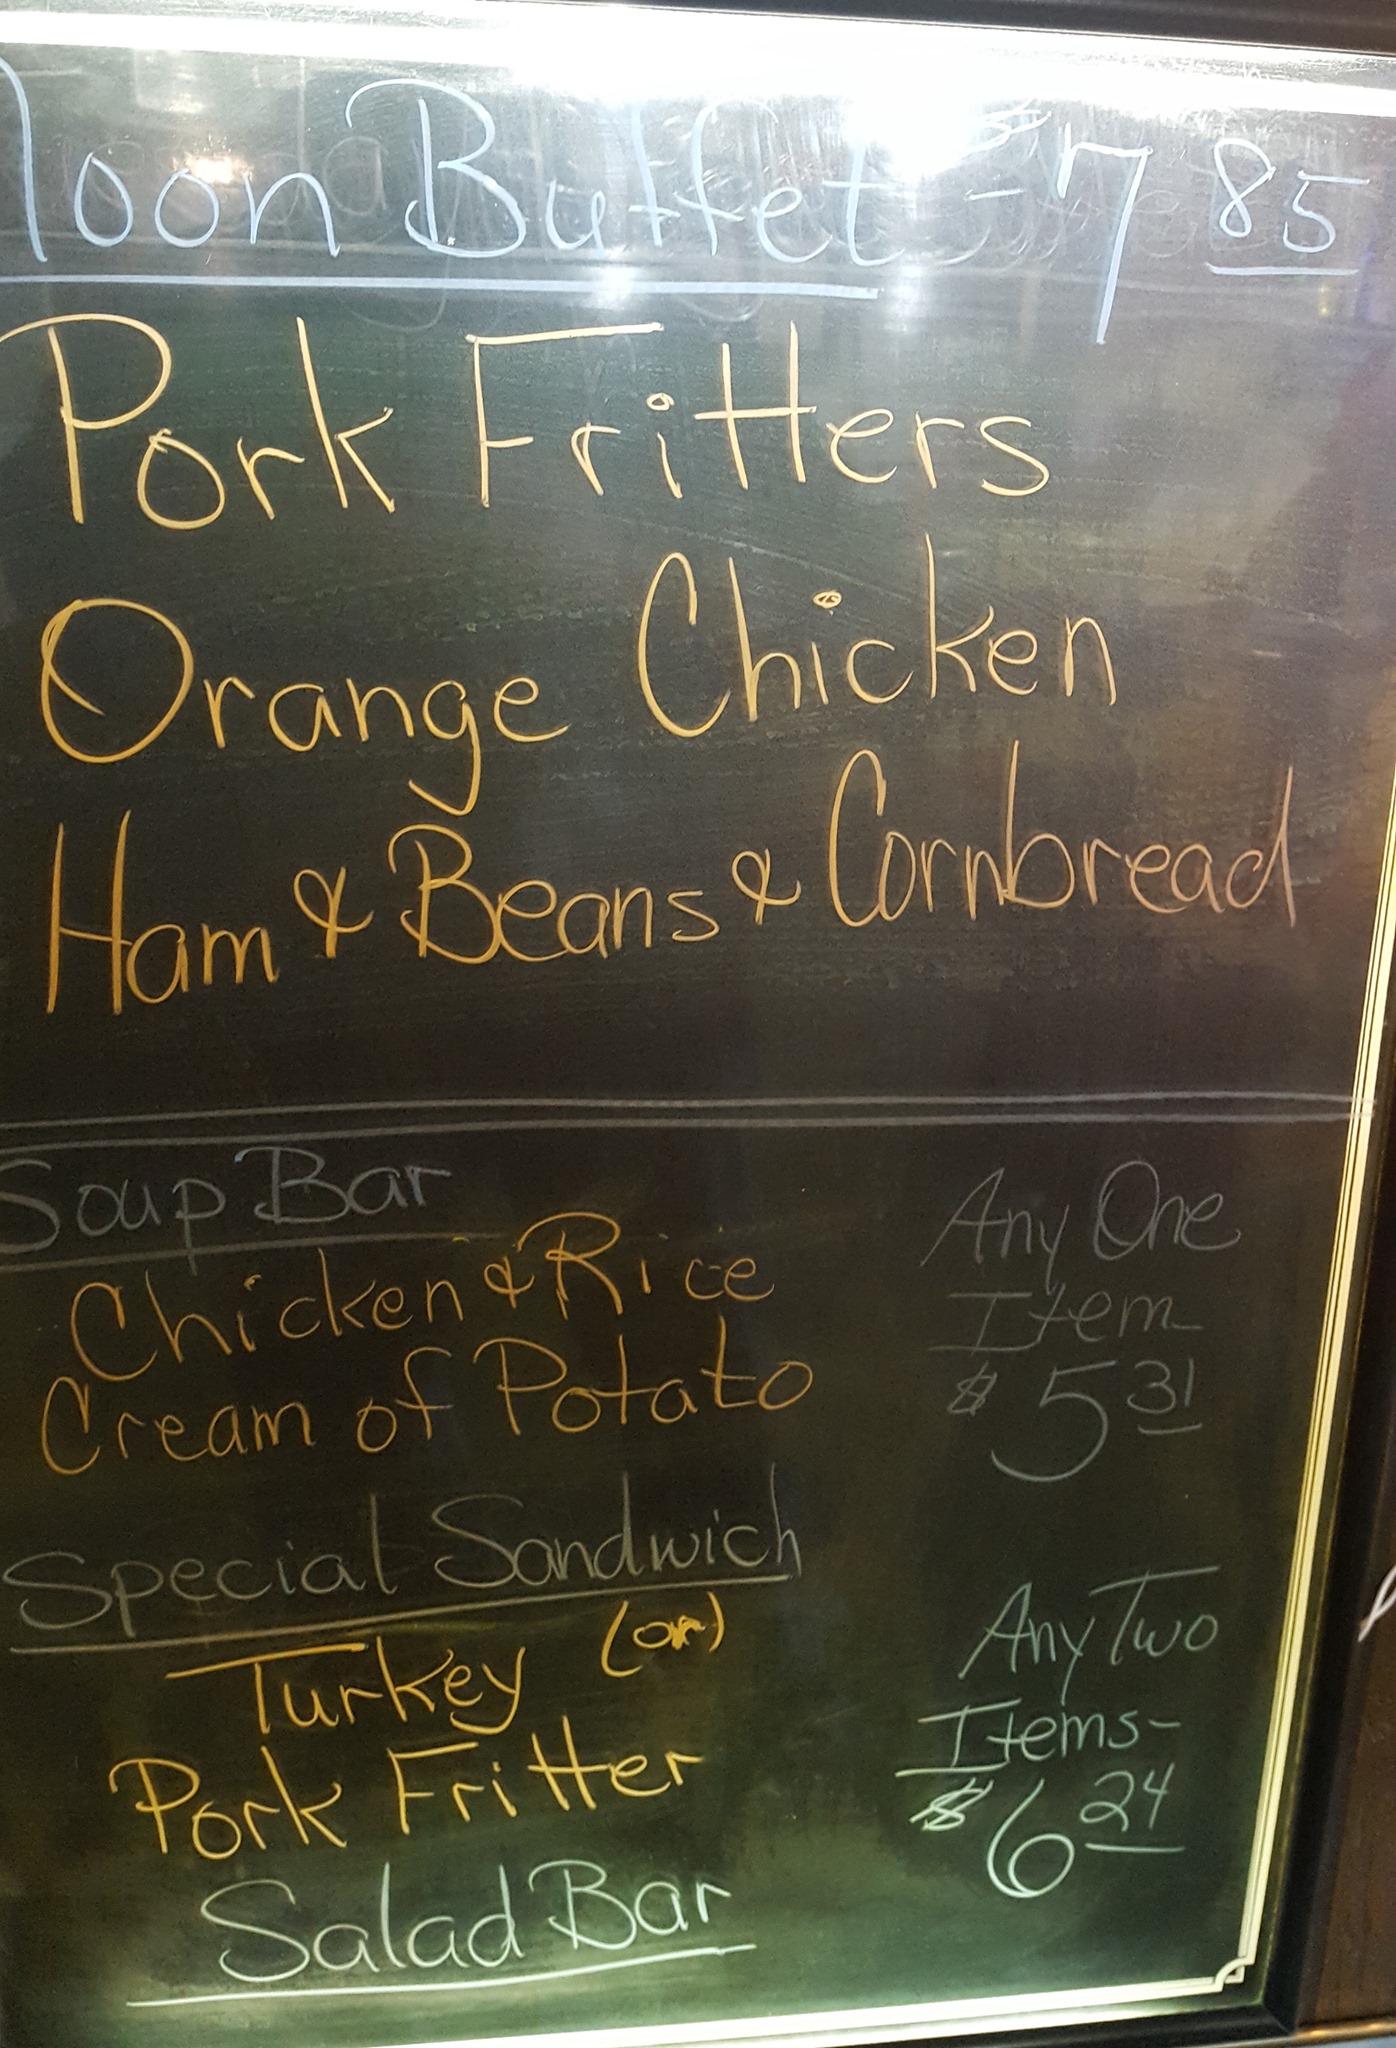 Noon Buffet - $7 85
Pork Fritters
Orange Chicken
Ham & Beans & Cornbread
Soup Bar
Chicken & Rice
Cream of Potato
Any One
Item-
$5 31
Special Sandwich
Turkey (or)
Pork Fritter
Salad Bar
Any Two
Items-
$6 24